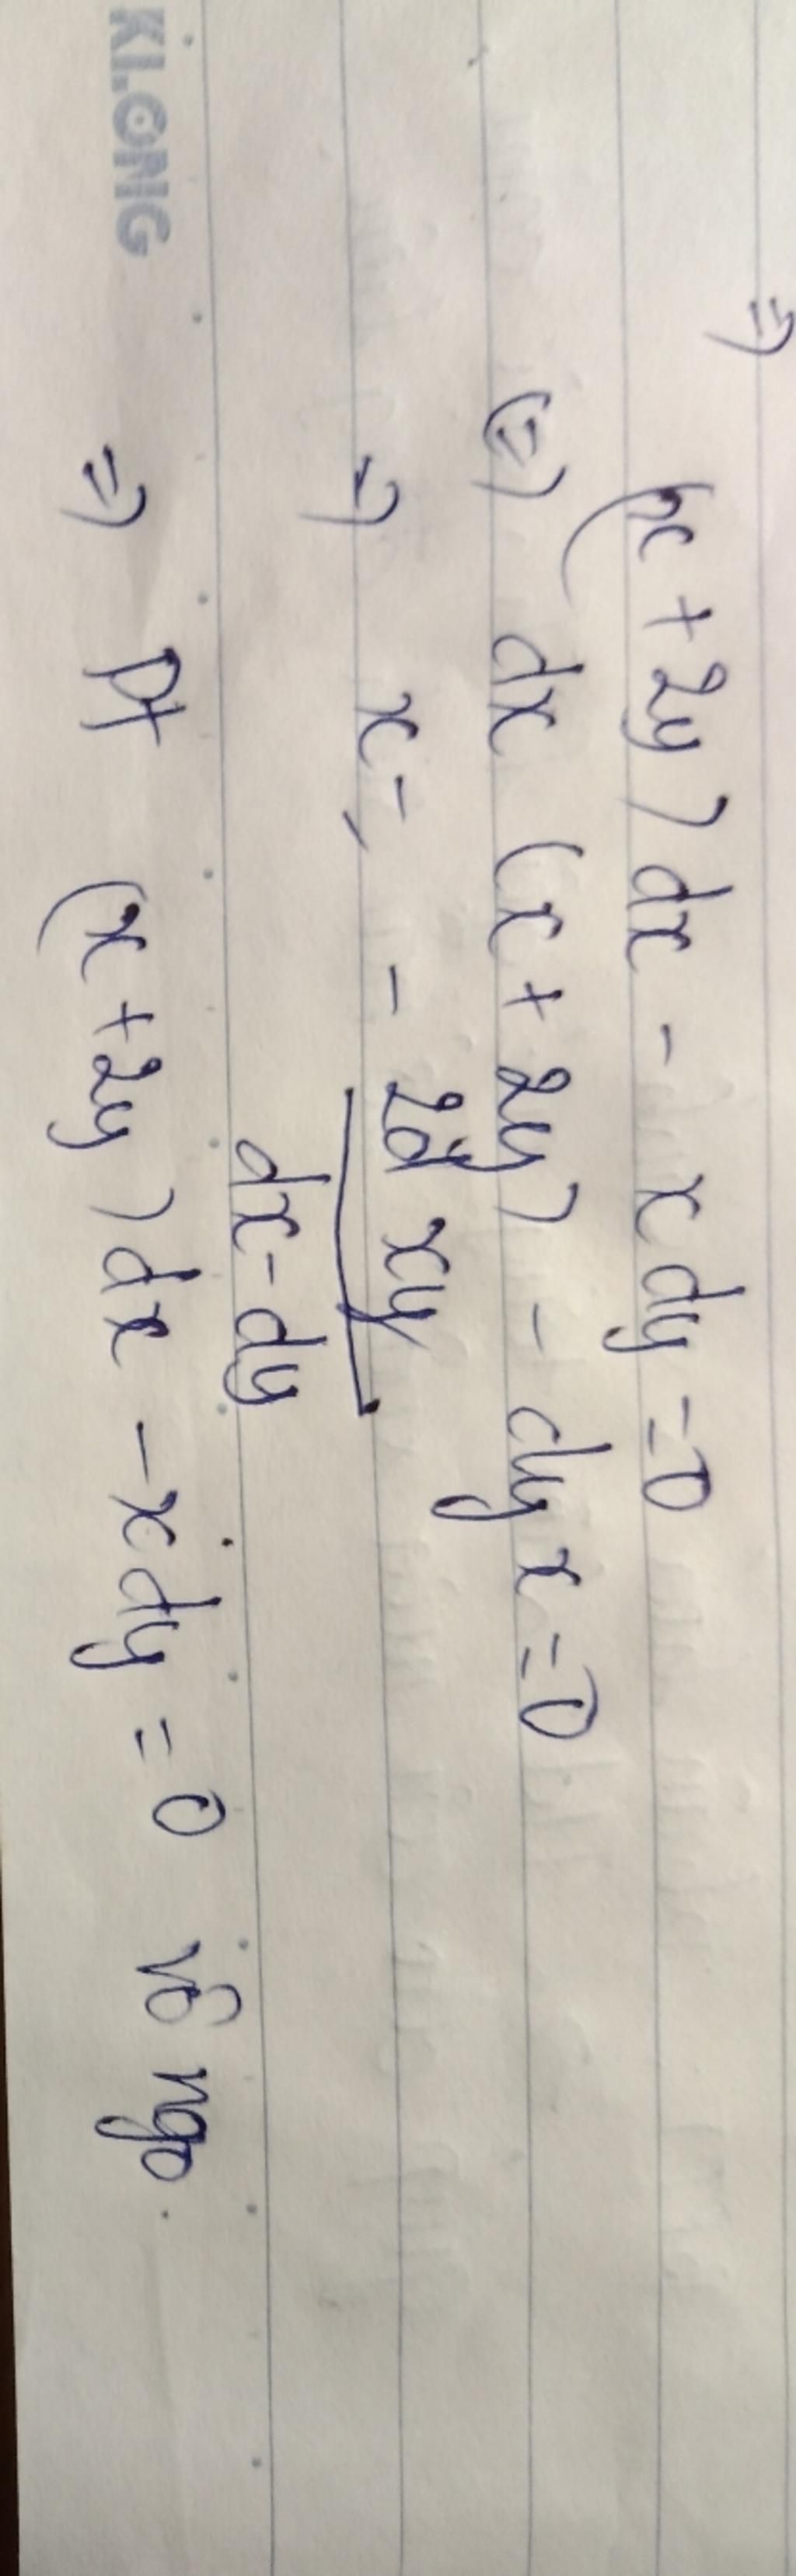 =)
(x + 2y) dx - x dy = 0
(=) dx (x + 2y) - dy x = 0
=) x = - 2d xy
dx - dy
=) Pt (x + 2y) dx - x dy = 0 vô ngo.
KLONG